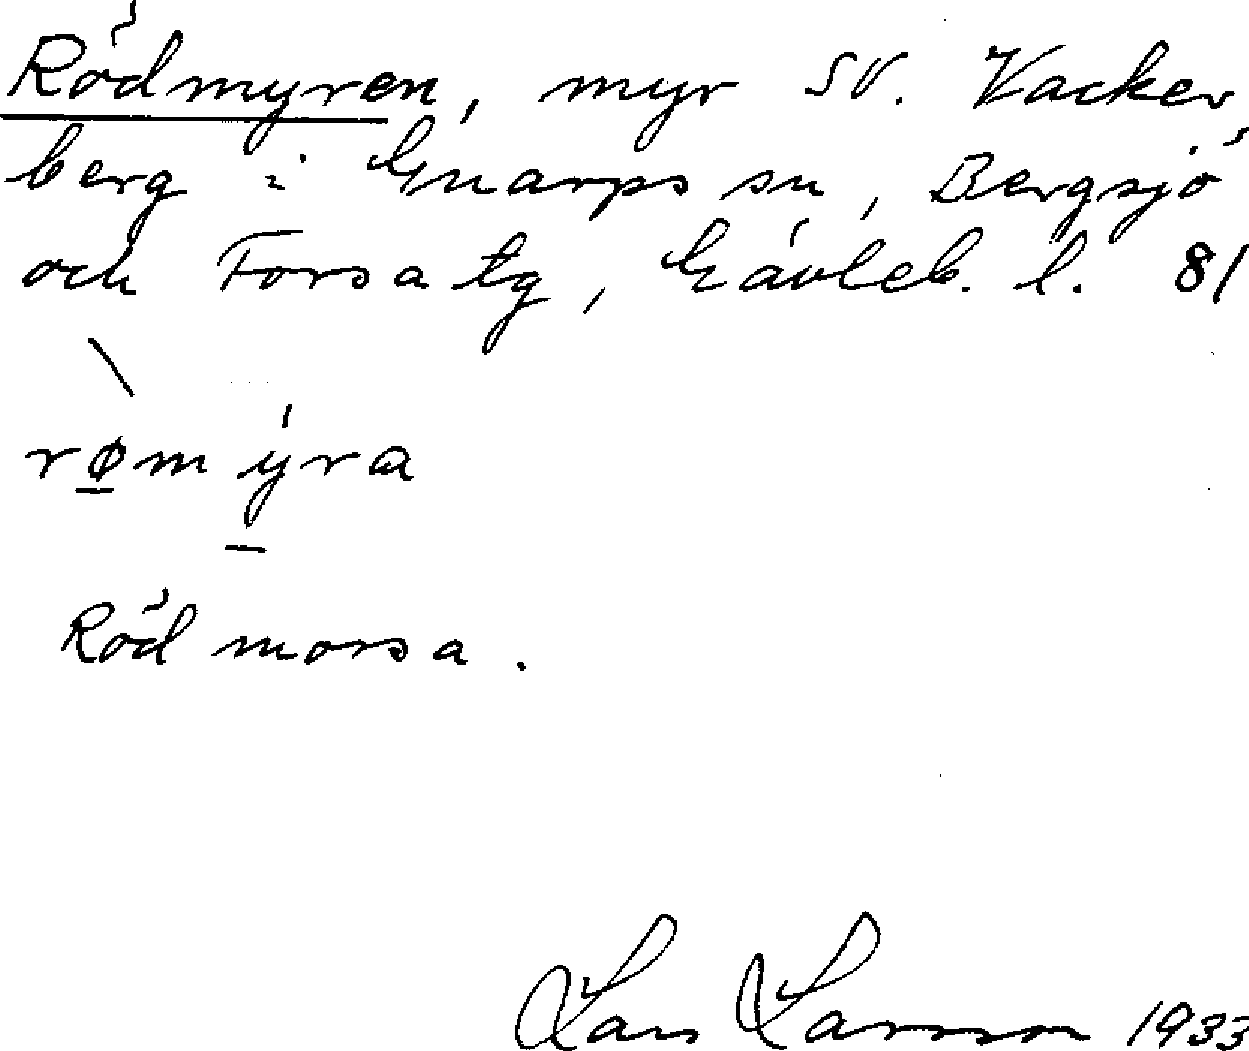 Rödmyren, myr SV. Vacker
berg i Gnarps sn, Bergsjö
och Forsa tg, Gävleb. l. 81
rø̱m ý̱ra
Röd mossa.
Lars Larsson 1933